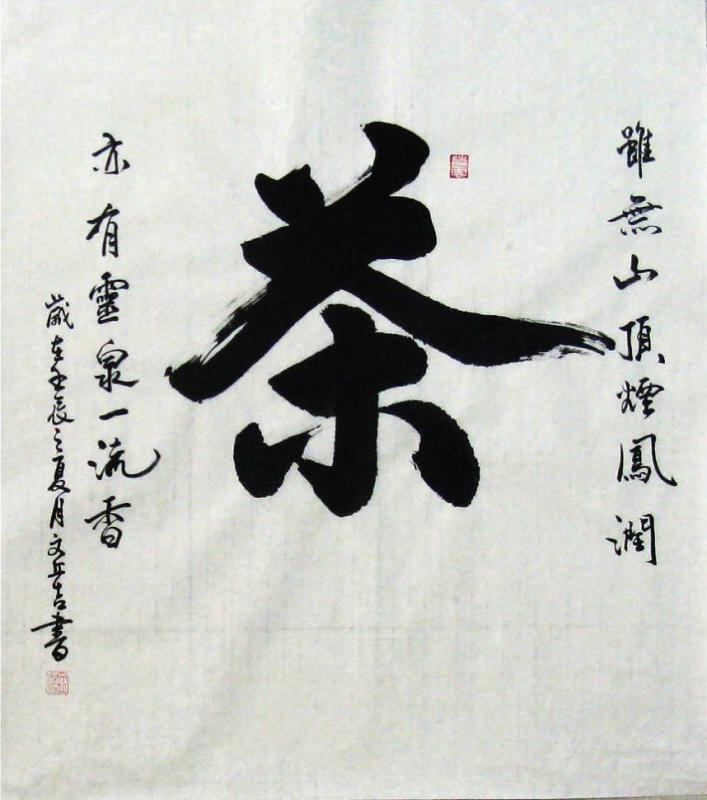 雖無山頂煙鳳潤
茶
亦有靈泉一流香
歲在壬辰之夏月文兵吉書